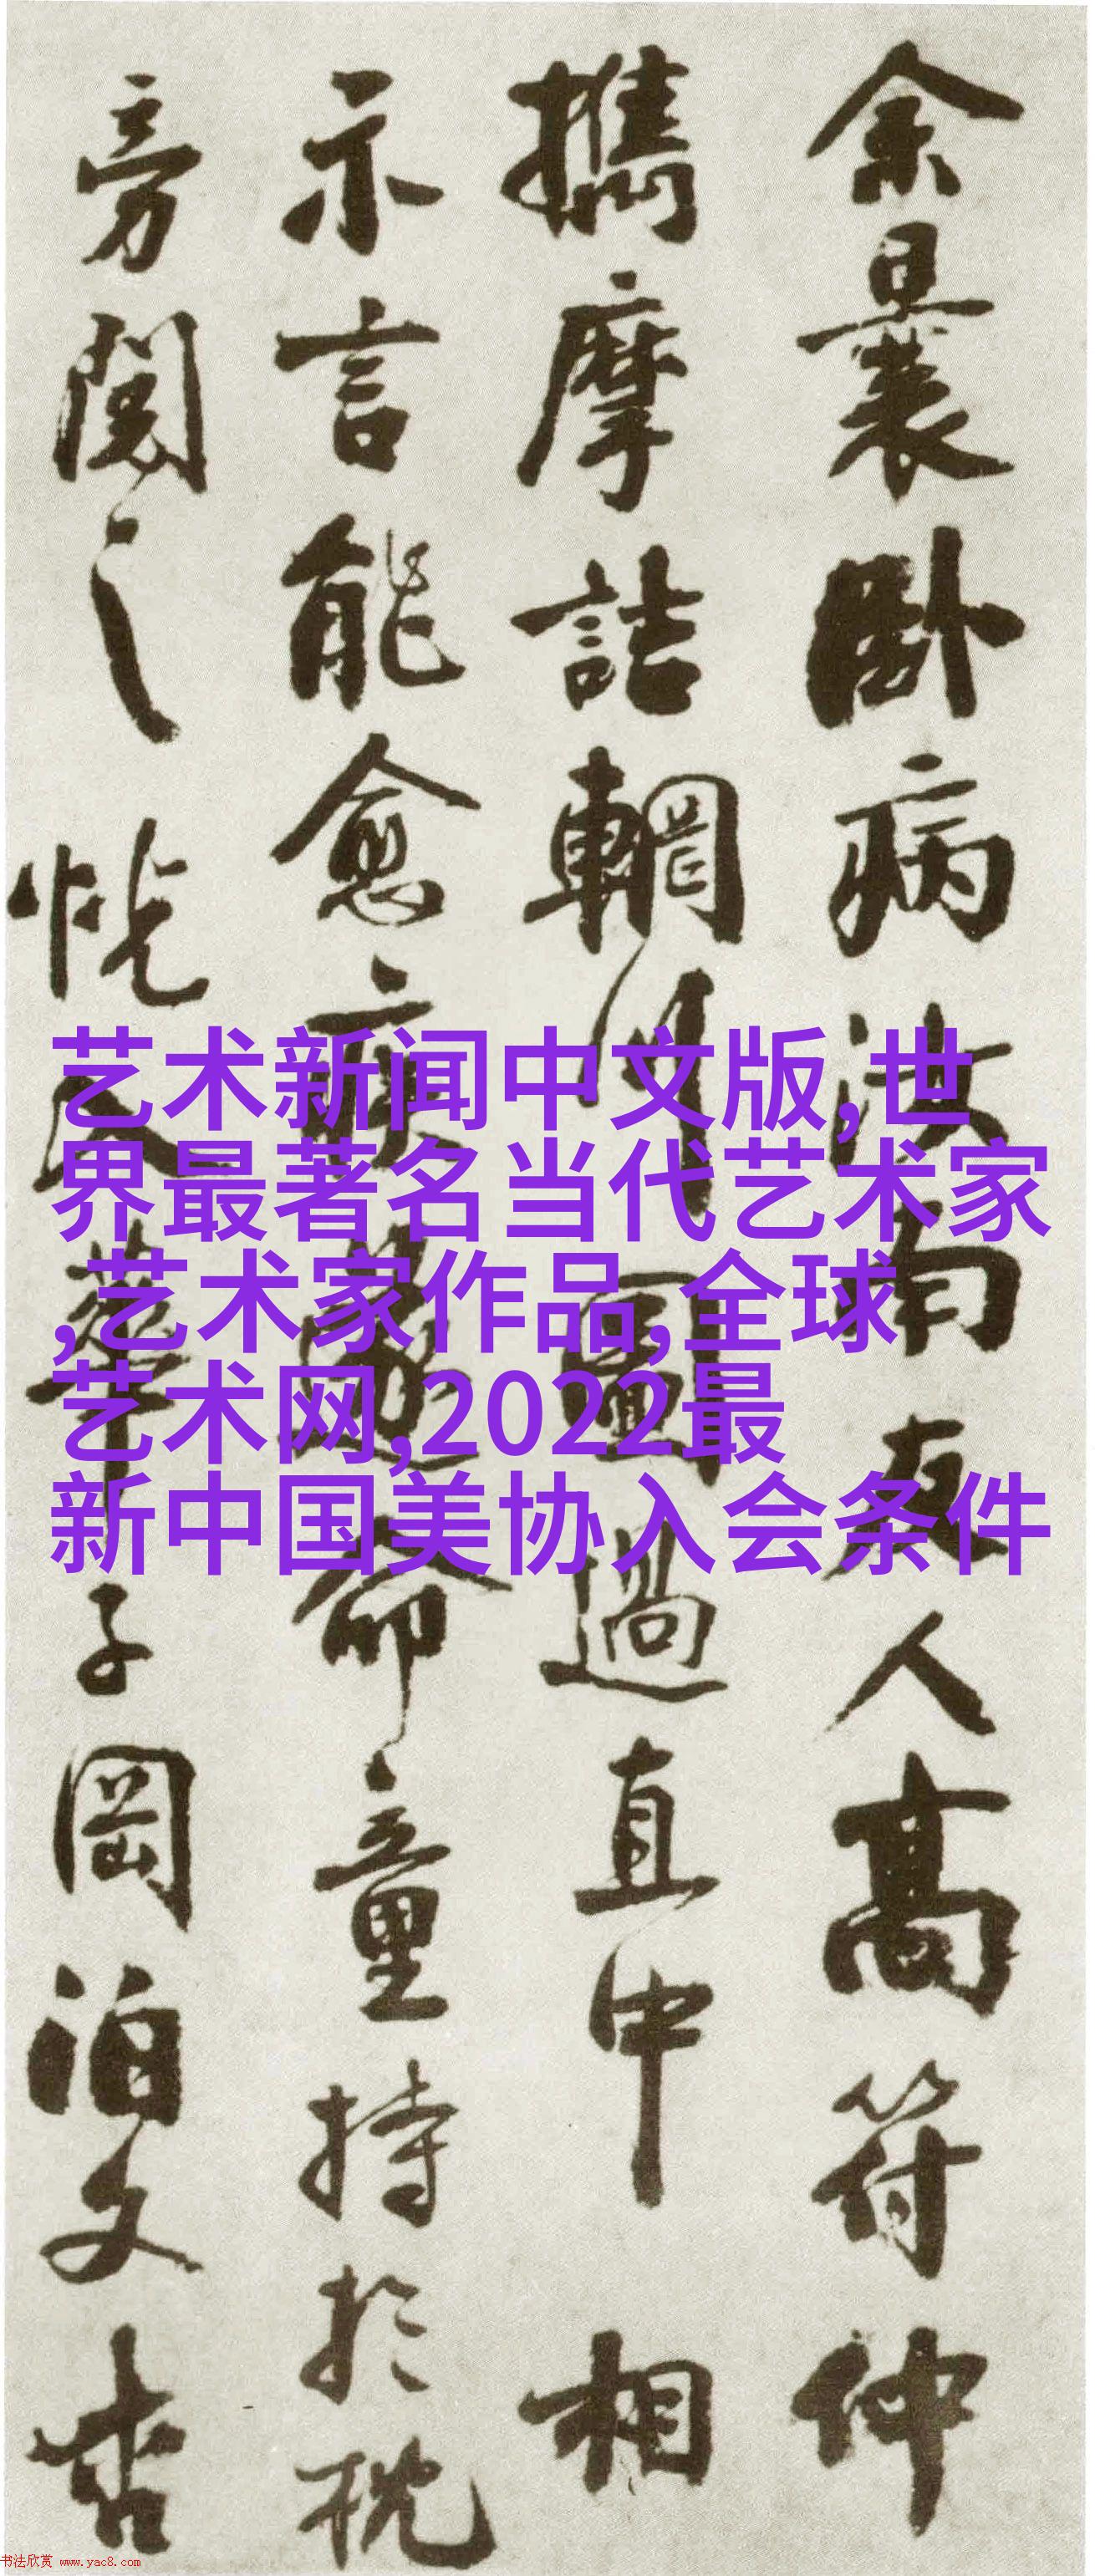 余曩卧病汝南友人高符仲
攜摩詰輞川圖過直中相
示言能愈疾遂命童持於枕
旁閱之恍入華子岡泊文杏
艺术新闻中文版,世
界最著名当代艺术家
,艺术家作品,全球
艺术网,2022最
新中国美协入会条件
书法欣赏 www.yac8.com